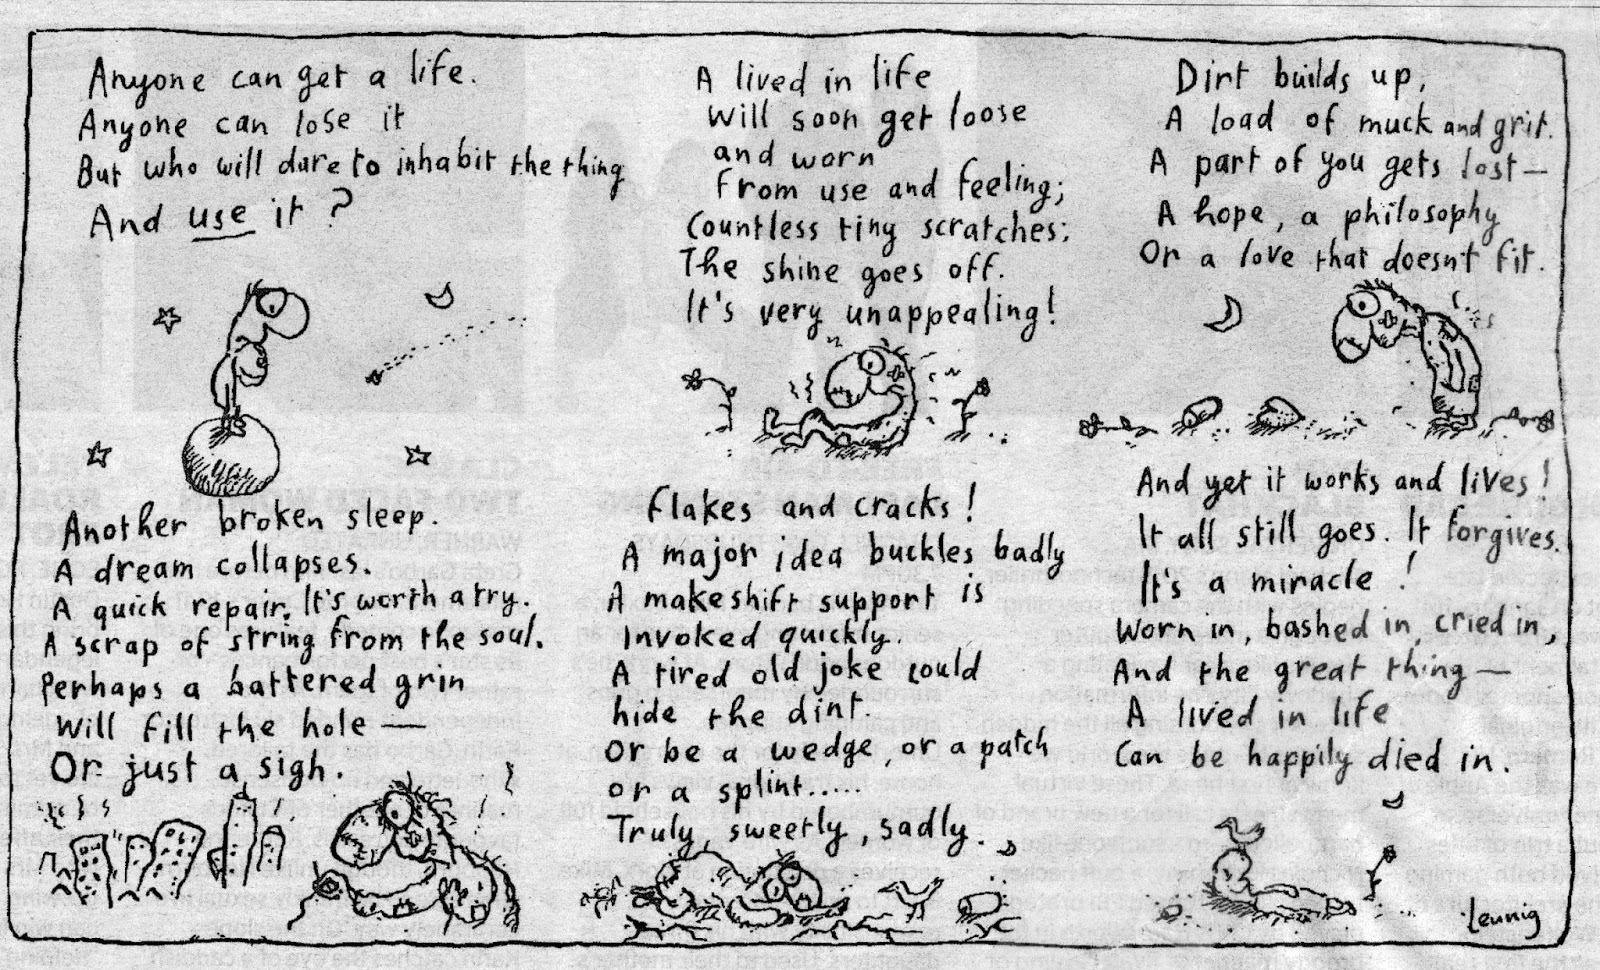 Anyone can get a life.
Anyone can lose it
But who will dare to inhabit the thing
And use it?
A lived in life
Will soon get loose
and worn
From use and feeling;
Countless tiny scratches;
The shine goes off.
It's very unappealing!
Dirt builds up,
A load of muck and grit.
A part of you gets lost —
A hope, a philosophy
Or a love that doesn't fit.
Another broken sleep.
A dream collapses.
A quick repair. It's worth a try.
A scrap of string from the soul.
Perhaps a battered grin
Will fill the hole —
Or just a sigh.
Flakes and cracks!
A major idea buckles badly
A makeshift support is
Invoked quickly.
A tired old joke could
hide the dint
Or be a wedge, or a patch
or a splint.....
Truly, sweetly, sadly.
And yet it works and lives!
It all still goes. It forgives.
It's a miracle!
Worn in, bashed in, cried in,
And the great thing —
A lived in life
Can be happily died in.
Leunig